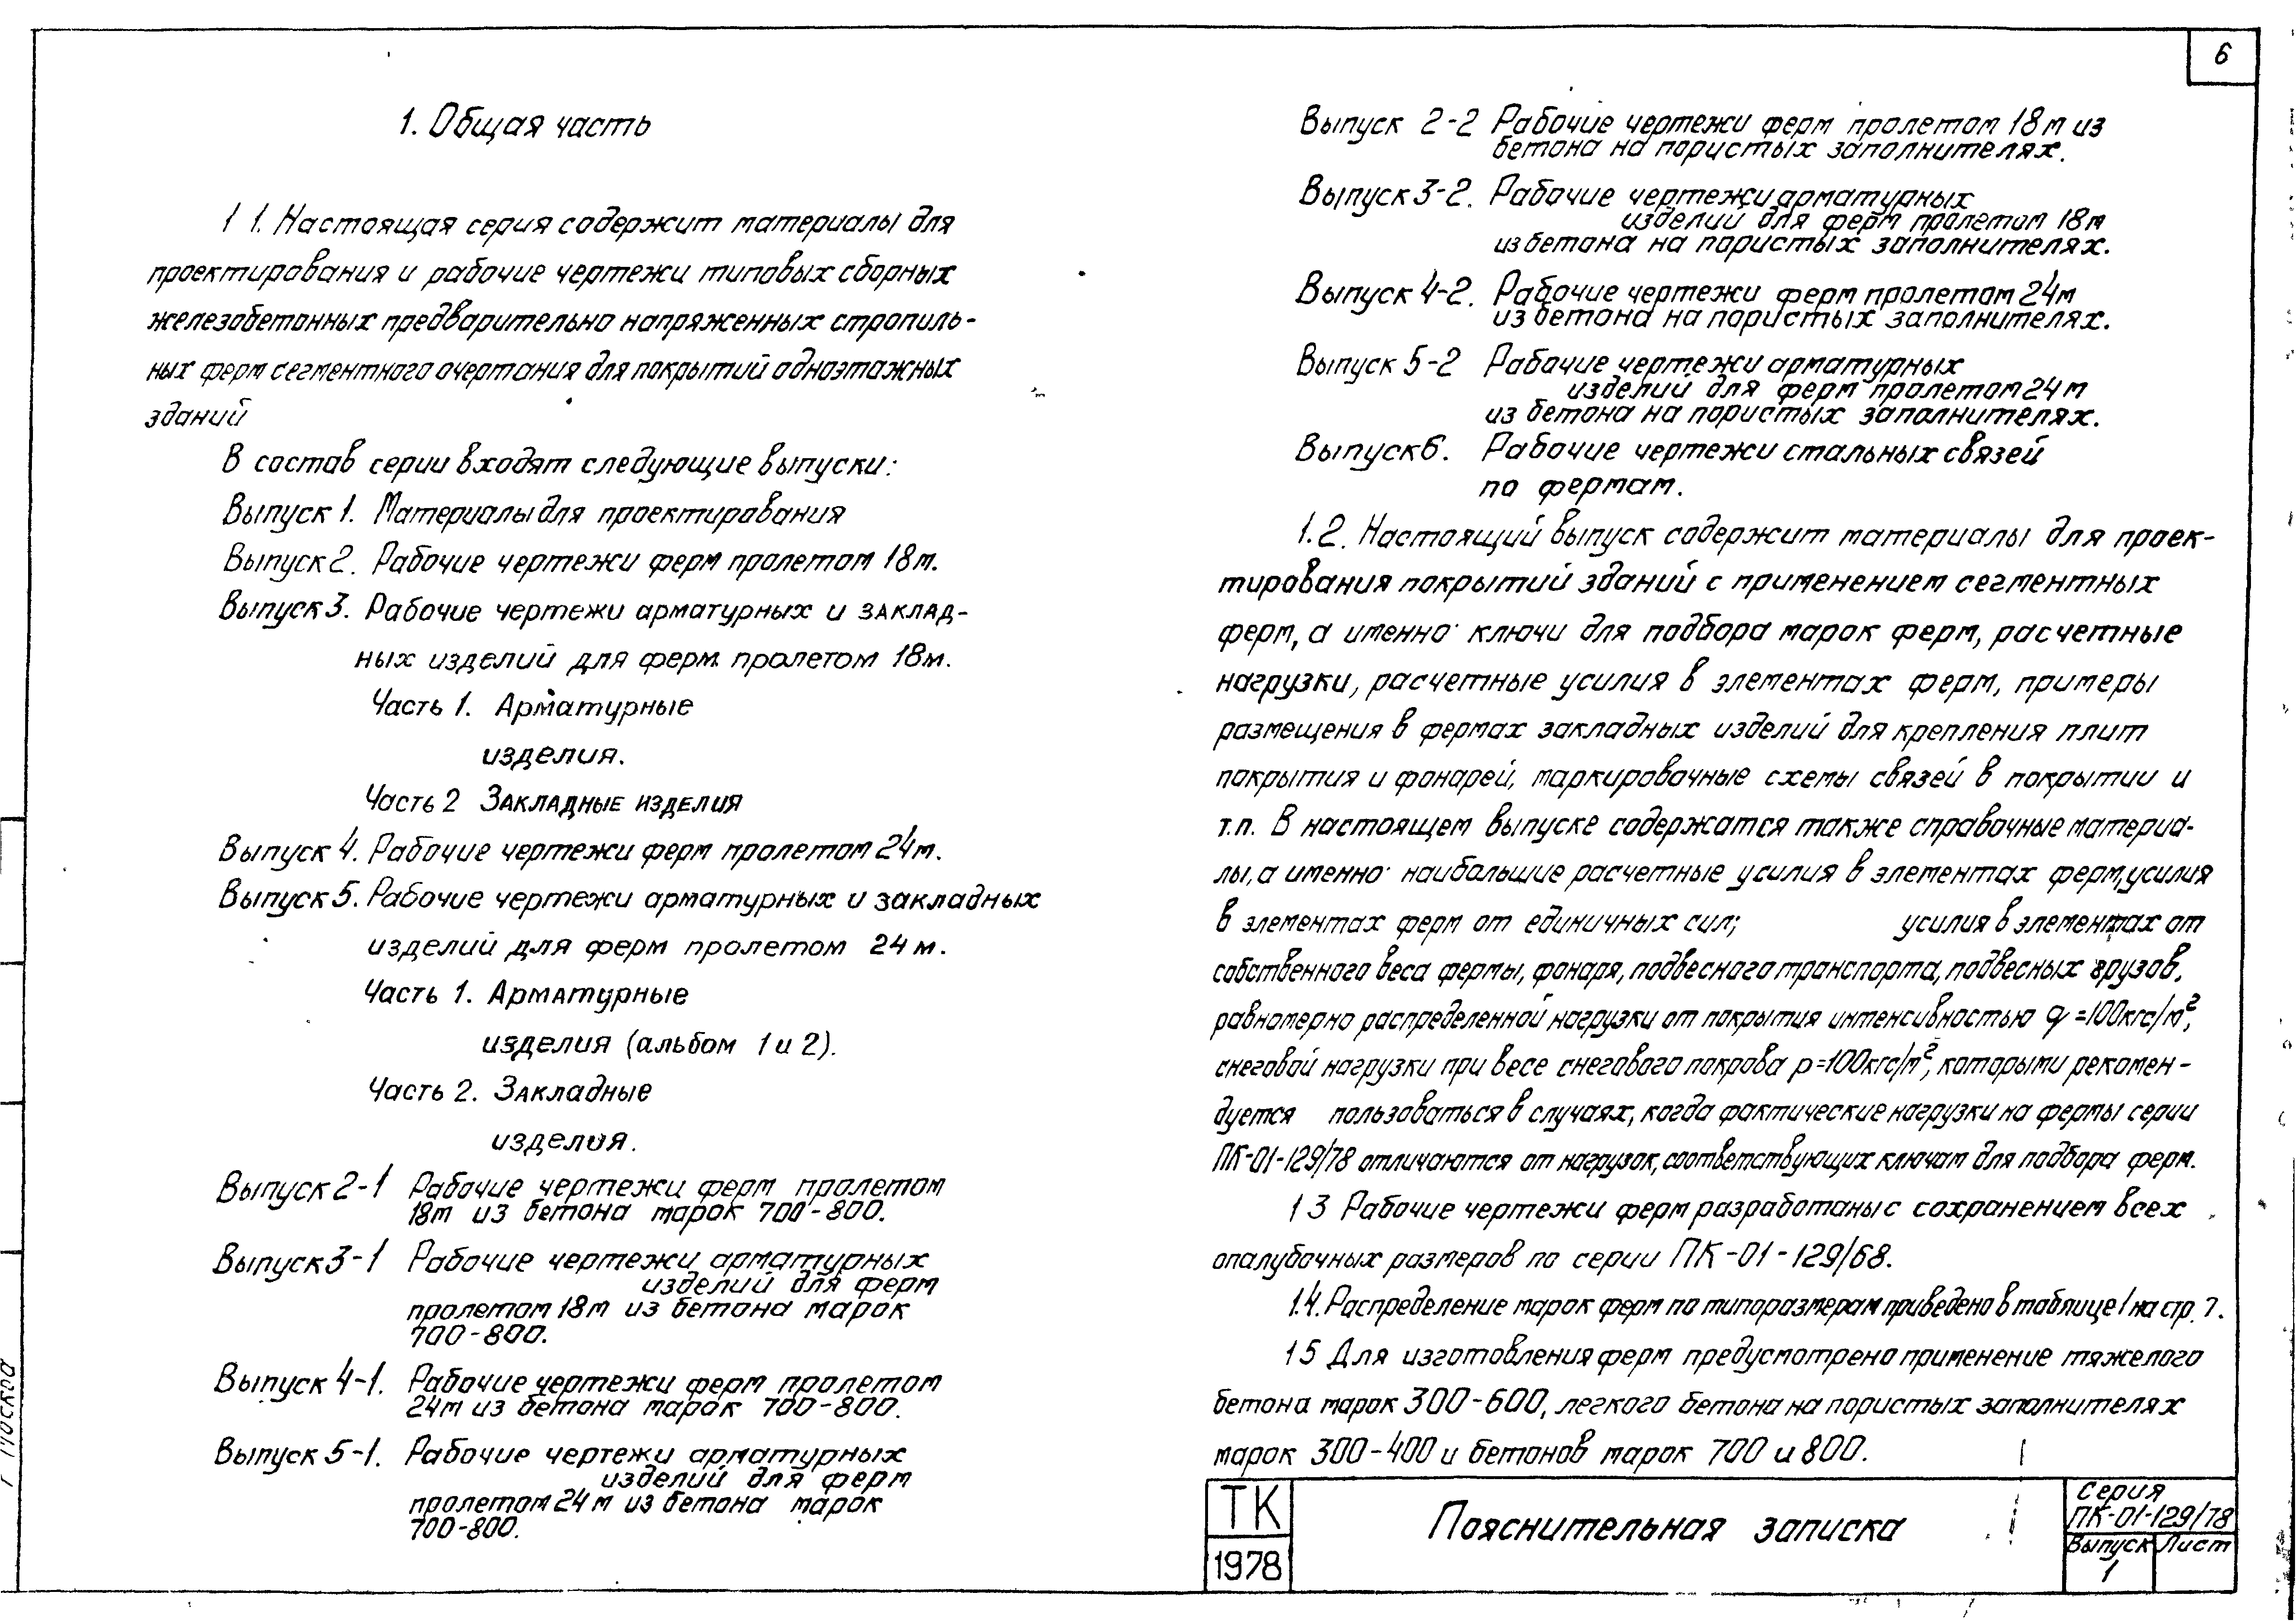 6
1. Общая часть
1 1. Настоящая серия содержит материалы для
проектирования и рабочие чертежи типовых сборных
железобетонных предварительно напряженных стропиль-
ных ферм сегментного очертания для покрытий одноэтажных
зданий
В состав серии входят следующие выпуски:
Выпуск 1. Материалы для проектирования
Выпуск 2. Рабочие чертежи ферм пролетом 18м.
Выпуск 3. Рабочие чертежи арматурных и заклад-
ных изделий для ферм пролетом 18м.
Часть 1. Арматурные
изделия.
Часть 2 Закладные изделия
Выпуск 4. Рабочие чертежи ферм пролетом 24м.
Выпуск 5. Рабочие чертежи арматурных и закладных
изделий для ферм пролетом 24м.
Часть 1. Арматурные
изделия (альбом 1 и 2).
Часть 2. Закладные
изделия.
Выпуск 2-1 Рабочие чертежи ферм пролетом
18м из бетона марок 700-800.
Выпуск 3-1 Рабочие чертежи арматурных
изделий для ферм
пролетом 18м из бетона марок
700-800.
Выпуск 4-1. Рабочие чертежи ферм пролетом
24м из бетона марок 700-800.
Выпуск 5-1. Рабочие чертежи арматурных
изделий для ферм
пролетом 24м из бетона марок
700-800.
Выпуск 2-2 Рабочие чертежи ферм пролетом 18м из
бетона на пористых заполнителях.
Выпуск 3-2. Рабочие чертежи арматурных
изделий для ферм пролетом 18м
из бетона на пористых заполнителях.
Выпуск 4-2. Рабочие чертежи ферм пролетом 24м
из бетона на пористых заполнителях.
Выпуск 5-2 Рабочие чертежи арматурных
изделий для ферм пролетом 24м
из бетона на пористых заполнителях.
Выпуск 6. Рабочие чертежи стальных связей
по фермам.
1.2. Настоящий выпуск содержит материалы для проек-
тирования покрытий зданий с применением сегментных
ферм, а именно: ключи для подбора марок ферм, расчетные
нагрузки, расчетные усилия в элементах ферм, примеры
размещения в фермах закладных изделий для крепления плит
покрытия и фонарей, маркировочные схемы связей в покрытии и
т.п. В настоящем выпуске содержатся также справочные материа-
лы, а именно: наибольшие расчетные усилия в элементах ферм, усилия
в элементах ферм от единичных сил; усилия в элементах от
собственного веса фермы, фонаря, подвесного транспорта, подвесных грузов,
равномерно распределенной нагрузки от покрытия интенсивностью q=100кгс/м²,
снеговой нагрузки при весе снегового покрова p=100кгс/м², которыми рекомен-
дуется пользоваться в случаях, когда фактические нагрузки на фермы серии
ПК-01-129/78 отличаются от нагрузок, соответствующих ключам для подбора ферм.
1 3 Рабочие чертежи ферм разработаны с сохранением всех
опалубочных размеров по серии ПК-01-129/68.
1.4. Распределение марок ферм по типоразмерам приведено в таблице 1 на стр. 7.
1 5 Для изготовления ферм предусмотрено применение тяжелого
бетона марок 300-600, легкого бетона на пористых заполнителях
марок 300-400 и бетонов марок 700 и 800.
ТК
1978
Пояснительная записка
Серия
ПК-01-129/78
Выпуск Лист
1
г Москва